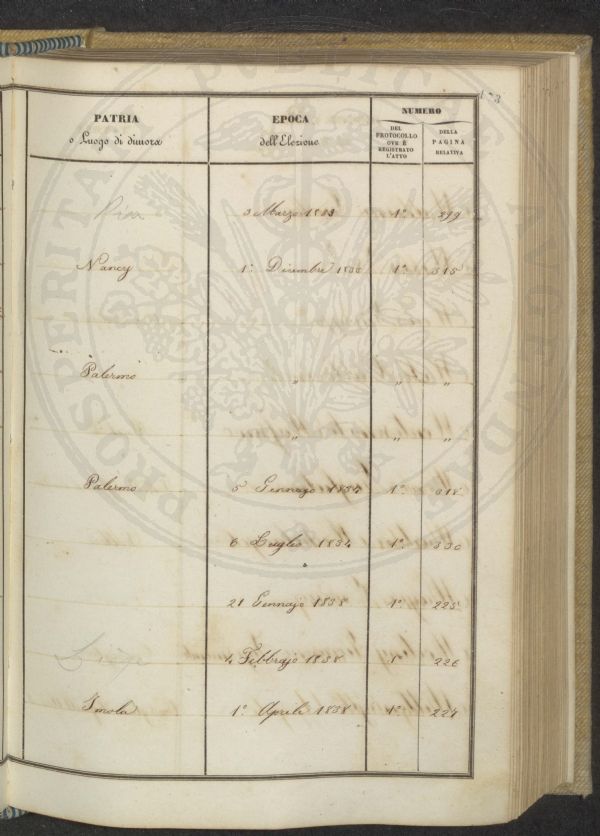 PATRIA
o Luogo di dimora
EPOCA
dell'Elezione
NUMERO
DEL
PROTOCOLLO
OVE È
REGISTRATO
L'ATTO
DELLA
PAGINA
RELATIVA
3 Marzo 1833 1º 299
Nancy 1º Dicembre 1833 1º 315
Palermo " " "
" " "
Palermo 5 Gennajo 1834 1º 318
6 Luglio 1834 1º 330
21 Gennajo 1838 1º 225
Liege 4 Febbrajo 1838 1º 226
Imola 1º Aprile 1838 1º 227
PROSPERITATI PUBLICAE AUGENDAE